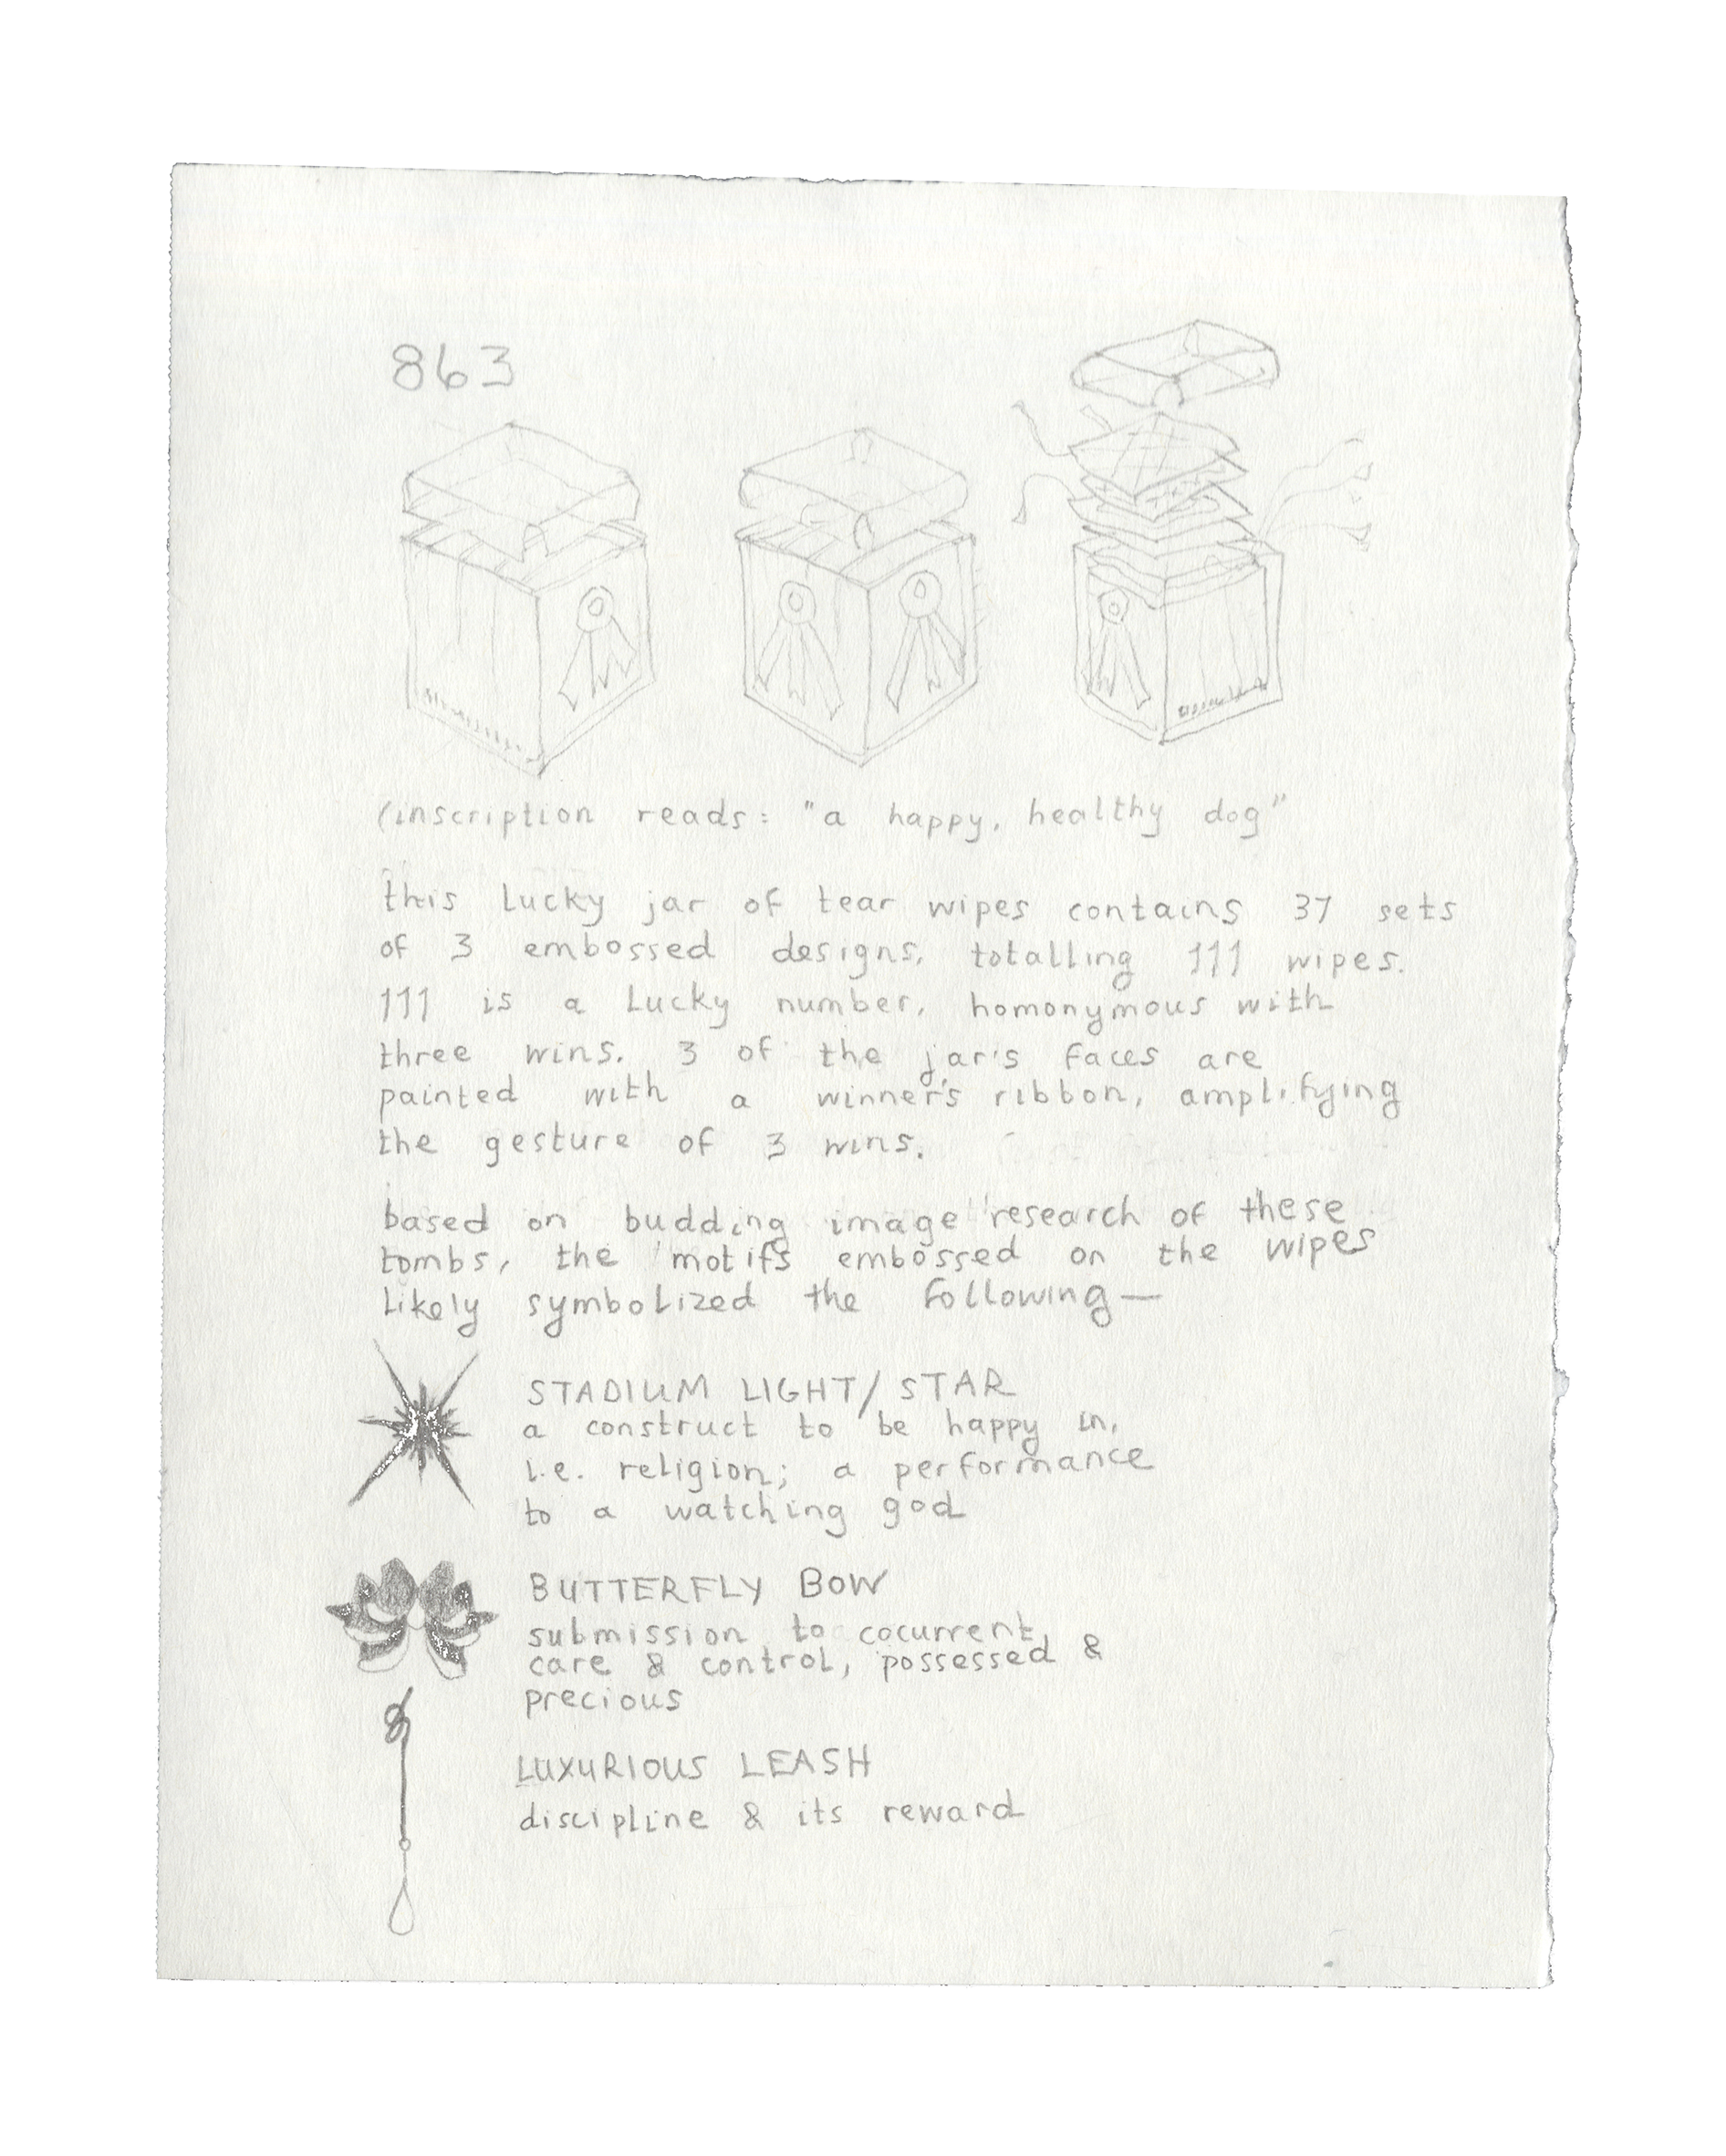 863
(inscription reads: "a happy, healthy dog"
this lucky jar of tear wipes contains 37 sets
of 3 embossed designs, totalling 111 wipes.
111 is a lucky number, homonymous with
three wins. 3 of the jar's faces are
painted with a winner's ribbon, amplifying
the gesture of 3 wins.
based on budding image research of these
tombs, the motifs embossed on the wipes
likely symbolized the following—
STADIUM LIGHT/STAR
a construct to be happy in,
i.e. religion; a performance
to a watching god
BUTTERFLY BOW
submission to cocurrent
care & control, possessed &
precious
LUXURIOUS LEASH
discipline & its reward